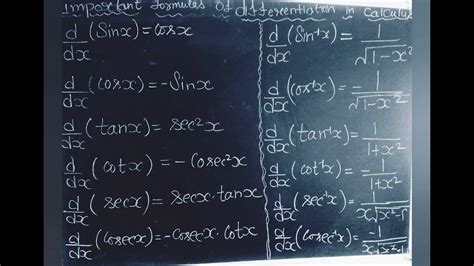 Important formulas of differentiation in calculus
d/dx (Sinx) = cosx
d/dx (cosx) = -Sinx
d/dx (tanx) = sec²x
d/dx (cotx) = -Cosec²x
d/dx (secx) = secx·tanx
d/dx (cosecx) = -Cosecx·Cotx
d/dx (Sin⁻¹x) = 1/√(1-x²)
d/dx (cos⁻¹x) = -1/√(1-x²)
d/dx (tan⁻¹x) = 1/(1+x²)
d/dx (cot⁻¹x) = -1/(1+x²)
d/dx (sec⁻¹x) = 1/(x√(x²-1))
d/dx (cosec⁻¹x) = -1/(x√(x²-1))